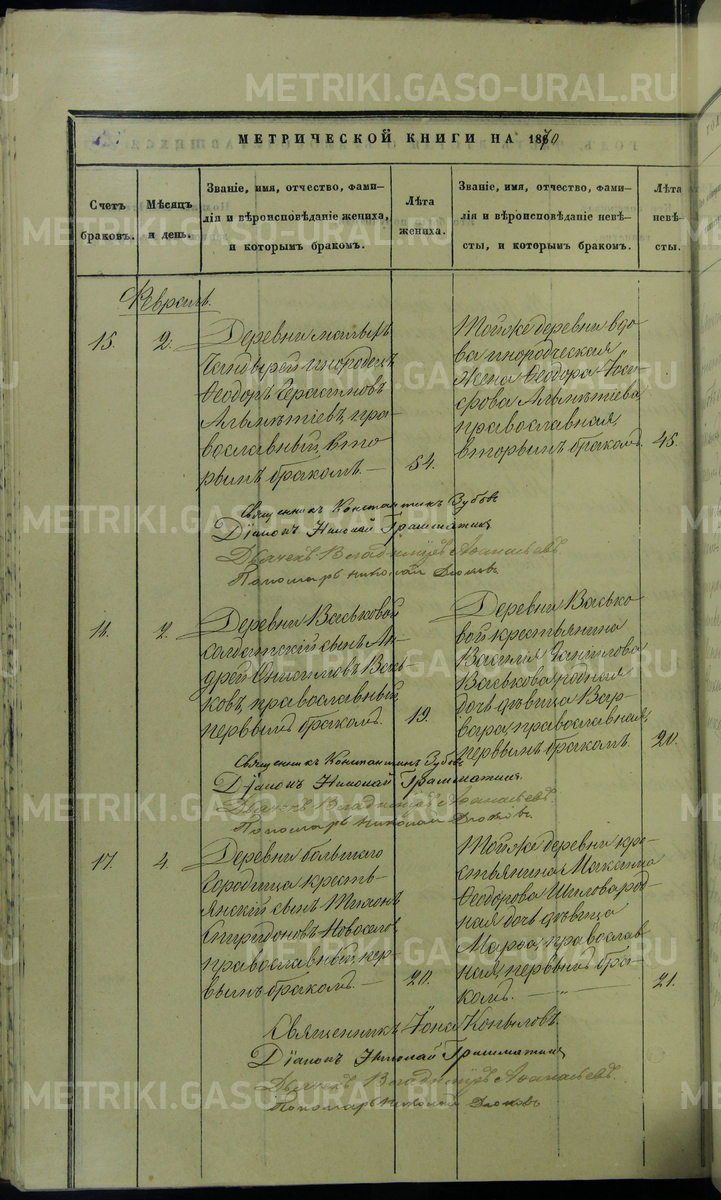 METRIKI.GASO-URAL.RU
МЕТРИЧЕСКОЙ КНИГИ НА 1870
Счетъ браковъ.
Мѣсяцъ и день.
Званіе, имя, отчество, фами-
лія и вѣроисповѣданіе жениха,
и которымъ бракомъ.
Лѣта жениха.
Званіе, имя, отчество, фами-
лія и вѣроисповѣданіе невѣ-
сты, и которымъ бракомъ.
Лѣта невѣ-
сты.
Февраль.
15.
2.
Деревни
инородецъ
Ѳеодоръ Герасимовъ
пра-
вославный, вто-
рымъ бракомъ. —
54.
Той же деревни вдо-
ва инородческая
жена Ѳеодора
православная,
вторымъ бракомъ.
45.
Священникъ Константинъ Зубовъ
Діаконъ Николай Грамматинъ
Дьячекъ Владиміръ Аѳанасьевъ
Пономарь Николай
16.
2.
Деревни Васьковой
солдатскій сынъ Ан-
дрей Онисимовъ Вась-
ковъ, православный,
первымъ бракомъ.
19.
Деревни Васько-
вой крестьянина
Василія Данилова
Васькова родная
дочь дѣвица Вар-
вара, православная,
первымъ бракомъ.
20.
Священникъ Константинъ Зубовъ
Діаконъ Николай Грамматинъ
Дьячекъ Владиміръ Аѳанасьевъ
Пономарь Николай
17.
4.
Деревни большаго
Городища кресть-
янскій сынъ Тихонъ
Спиридоновъ Новоселовъ
православный, пер-
вымъ бракомъ. —
20.
Той же деревни кре-
стьянина Максима
Ѳеодорова Шилова род-
ная дочь дѣвица
Марѳа, православ
ная, первымъ бра-
комъ. — „ —
21.
Священникъ Іона Копыловъ.
Діаконъ Николай Грамматинъ
Дьячекъ Владиміръ Аѳанасьевъ.
Пономарь Николай